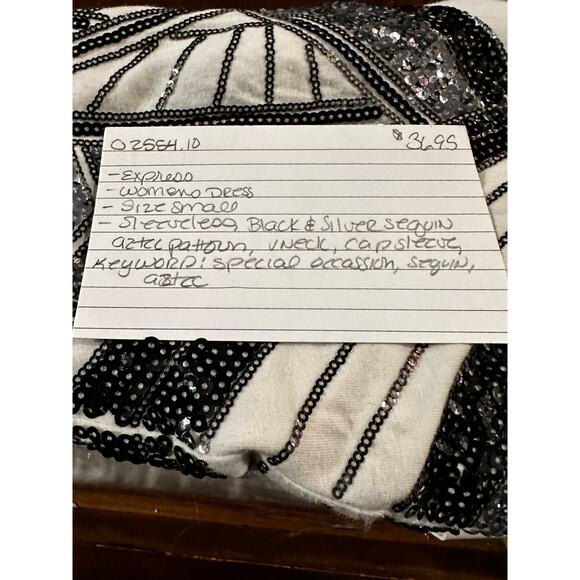 02554.10 $36.95
- Express
- womens Dress
- Size small
- Sleeveless, Black & Silver sequin
aztec pattern, vneck, cap sleeve,
Keyword: special occassion, sequin,
aztec